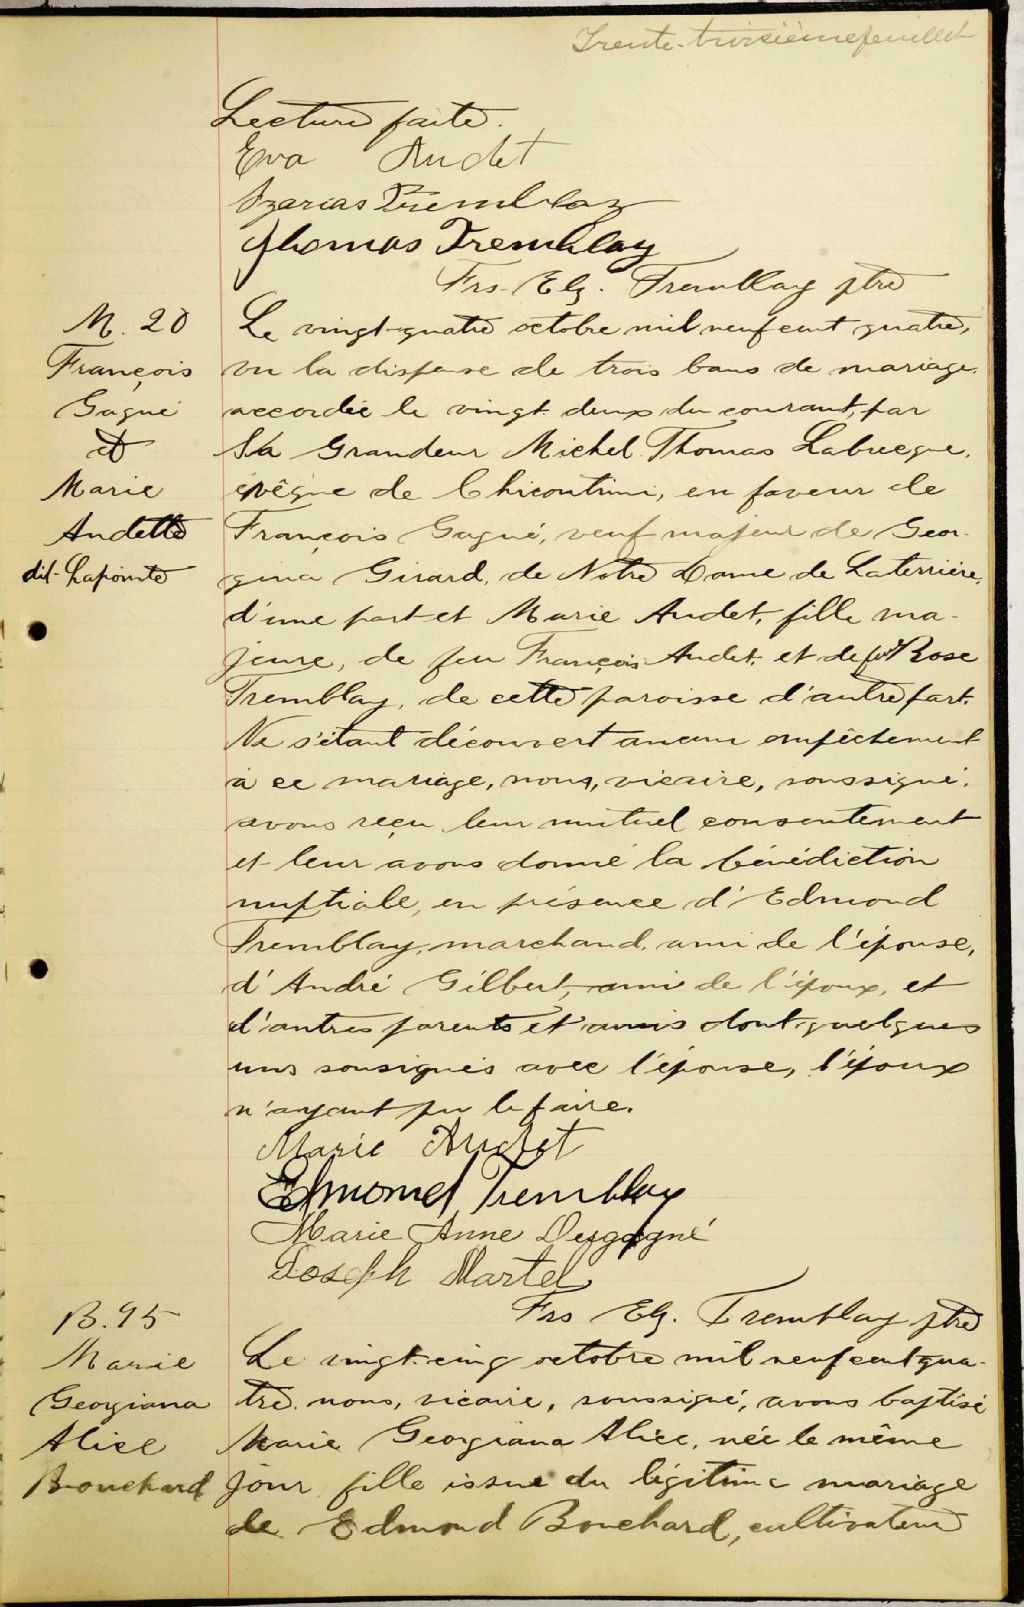 Trente-troisième feuillet
Lecture faite.
Eva Audet
Azarias Tremblay
Thomas Tremblay
Frs. Elz. Tremblay ptre
M. 20
François
Gagné
et
Marie
Audette
dit-Lapointe
Le vingt-quatre octobre mil neuf cent quatre,
vu la dispense de trois bans de mariage
accordée le vingt-deux du courant, par
Sa Grandeur Michel Thomas Labrecque,
évêque de Chicoutimi, en faveur de
François Gagné, veuf majeur de Geor-
gina Girard, de Notre Dame de Laterrière,
d'une part et Marie Audet, fille ma-
jeure, de feu François Audet, et de feu Rose
Tremblay, de cette paroisse d'autre part.
Ne s'étant découvert aucun empêchement
à ce mariage, nous, vicaire, soussigné,
avons reçu leur mutuel consentement
et leur avons donné la bénédiction
nuptiale, en présence d'Edmond
Tremblay, marchand, ami de l'épouse,
d'André Gilbert, ami de l'époux, et
d'autres parents et amis dont quelques
uns sousignés avec l'épouse, l'époux
n'ayant pu le faire.
Marie Audet
Edmond Tremblay
Marie Anne Desgagné
Joseph Martel
Frs Elz. Tremblay ptre
B. 95
Marie
Georgiana
Alice
Bouchard
Le vingt-cinq octobre mil neuf cent qua-
tre nous, vicaire, soussigné, avons baptisé
Marie Georgiana Alice, née le même
jour fille issue du légitime mariage
de Edmond Bouchard, cultivateur